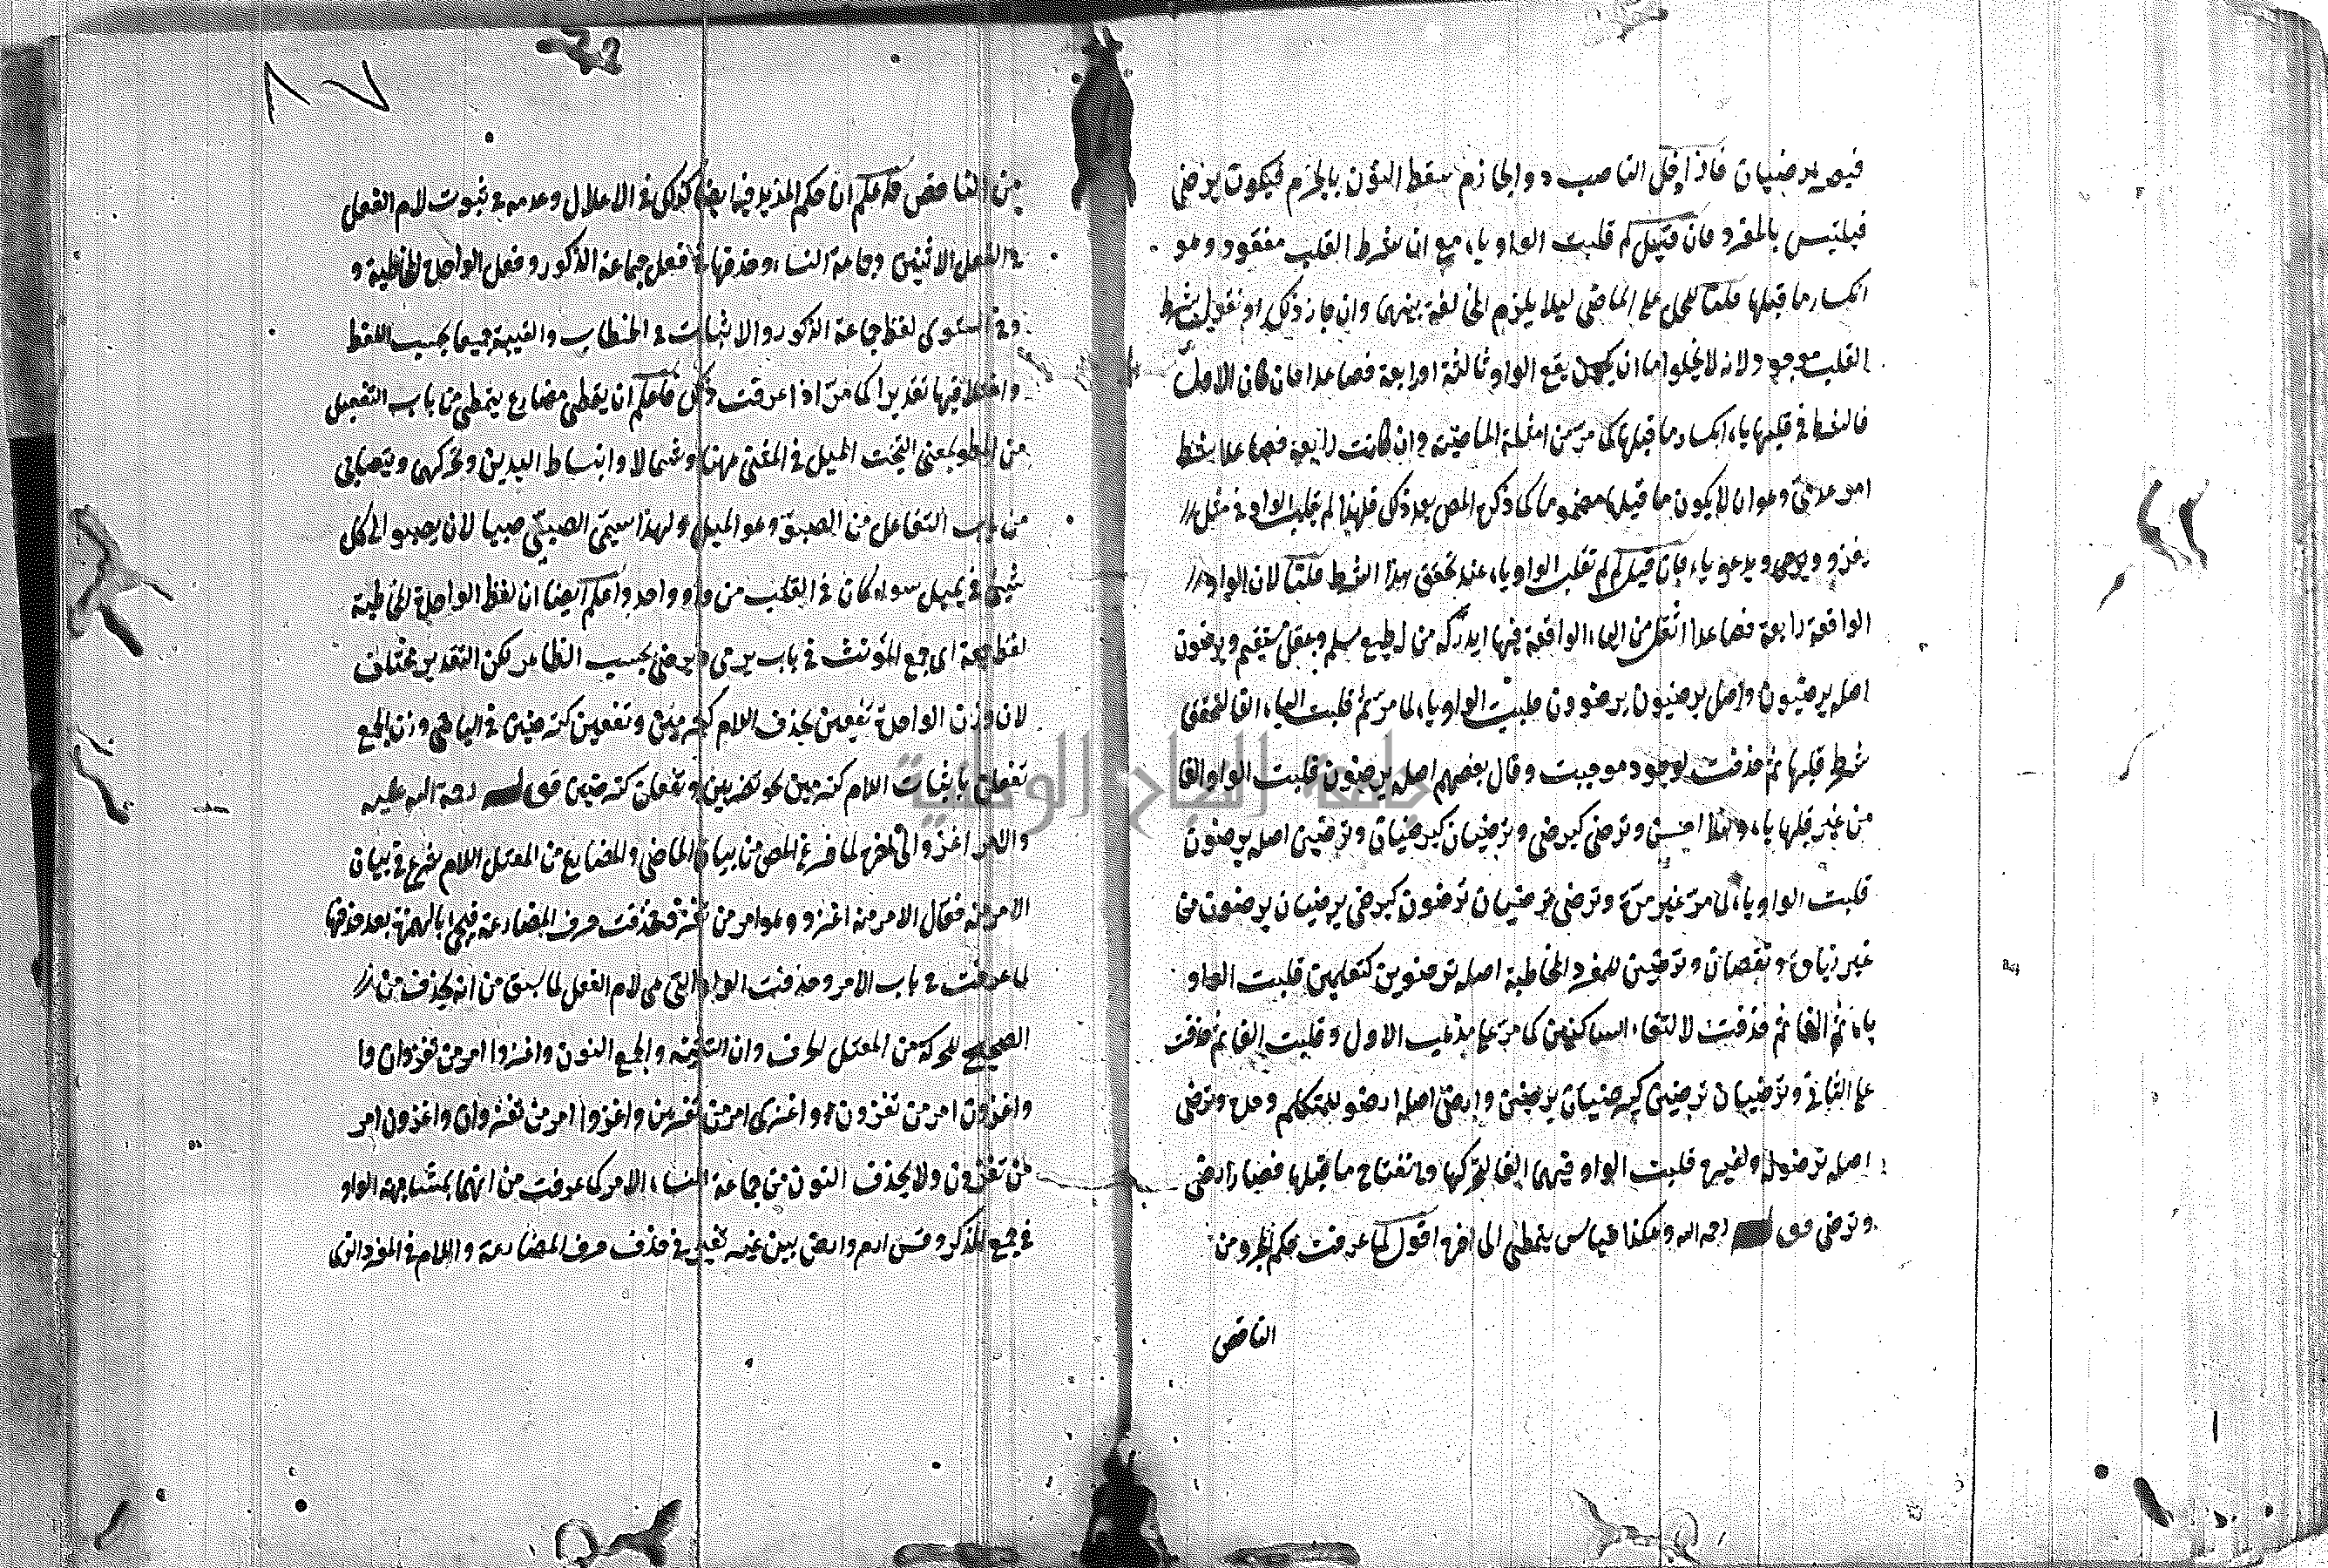 فيه يرضيان فاذا دخل الناصب والجازم سقط النون بالجزم فيكون يرضى
فيلتبس بالمفرد فان قيل لم قلبت الواو ياء مع ان شرط القلب مفقود وهو
انكسار ما قبلها قلنا للحمل على الماضى ليلا يلزم المخالفة بينهما وان جاز ذلك او نقول شرط
القلب موجود لانه لا يخلوا اما ان يقع الواو ثالثة او رابعة فصاعدا فان كان الاول
فالشرط فى قلبها ياء انكسار ما قبلها كما مر من امثلة الماضية وان كانت رابعة فصاعدا شرط
امر عدمى وهو ان لا يكون ما قبلها مضموما كما ذكره المص بعد ذلك فلهذا لم يقلب الواو فى مثل
يغزو ويدعو ياء فان قيل لم لم تقلب الواو ياء عند تحقق هذا الشرط قلنا لان الواو
الواقعة رابعة فصاعدا اثقل من الياء الواقعة فيها يدركه من له طبع سليم وعقل مستقيم ويرضون
اصله يرضيون واصل يرضيون يرضوون قلبت الواو ياء لما مر ثم قلبت الياء الفا لتحقق
شرط قلبها ثم حذفت لوجود موجبت وقال بعضهم اصله يرضوون قلبت الواو الفا
من غير قلبها ياء وهذا احسن وترضى كيرضى وترضيان كيرضيان وترضين اصله يرضون
قلبت الواو ياء لما مر غير مرة وترضى ترضيان ترضون كيرضى يرضيان يرضون من
غير زيادة ونقصان وترضين للمفرد المخاطبة اصله ترضوين كتعلمين قلبت الواو
ياء ثم الفا ثم حذفت لالتقاء الساكنين كما مر على مذهب الاول وقلبت الفا ثم حذفت
على الثانى وترضيان ترضين كيرضيان يرضين وارضى اصله ارضو للمتكلم وحده ونرضى
اصله نرضو لغيره قلبت الواو فيهما الفا لتحركها وانفتاح ما قبلها فصار ارضى
ونرضى قال رحمه الله وهكذا قياس يتمطى الى اخره اقول لما عرفت حكم المجرد من
الناقص
من الناقص فاعلم ان حكم المزيد فيه ايضا كذلك فى الاعلال وعدمه فى ثبوت لام الفعل
فى الفعل الاثنين وجماعة النساء وحذفها فى فعل جماعة الذكور وفعل الواحدة المخاطبة و
وفى استوى لفظ جماعة الذكور والاناث فى الخطاب والغيبة جميعا بحسب اللفظ
واختلافها تقديرا كما مر اذا عرفت ذلك فاعلم ان يتمطى مضارع يتمطى من باب التفعل
من المطو بمعنى الميل فى المشى يمينا وشمالا وانبساط اليدين وتحركهما ويتصابى
من باب التفاعل من الصبوة وهو الميل ولهذا سمى الصبى صبيا لان يصبو الى كل
شيئ فيميل سواء كان فى القلب من واو واحد واعلم ايضا ان لفظ الواحدة المخاطبة
لفظ جمعه اى جمع المؤنث فى باب يرمى ويرضى بحسب الظاهر لكن التقدير مختلف
لان وزن الواحدة تفعين بحذف اللام كترمين وتفعين كترضين فى الباقى ووزن الجمع
تفعلن باثبات اللام كترمين نحو تضربن وتفعلن كترضين قال رحمة الله عليه
والامر اغز والى اخره لما فرغ المص من بيان الماضى والمضارع من المعتل اللام شرع فى بيان
الامر منه فقال الامر منه اغزو وهو امر من تغزو فحذفت حرف المضارعة فيجى بالهمزة بعد حذفها
لما عرفت فى باب الامر وحذفت الواو التى هى لام الفعل لما سبق من انه يحذف من
الصحيح الحركة ومن المعتل الحرف وان التثنية والجمع النون واغزوا امر من تغزوان وا
واغزون امر من تغزون واغزى امر من تغزين واغزوا امر من تغزوان واغزون امر
من تغزون ولا يحذف النون من جماعة النساء الامر كما عرفت من انها بمشابهة الواو
فى جمع المذكر وقس ارم وارض بين غيره تغيير فى حذف حرف المضارعة واللام فى المفرد الذى